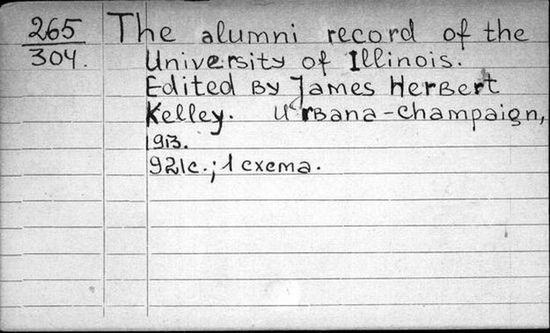 265
304.
The alumni record of the
University of Illinois.
Edited by James Herbert
Kelley. Urbana-Champaign,
1913.
921 с.; 1 схема.